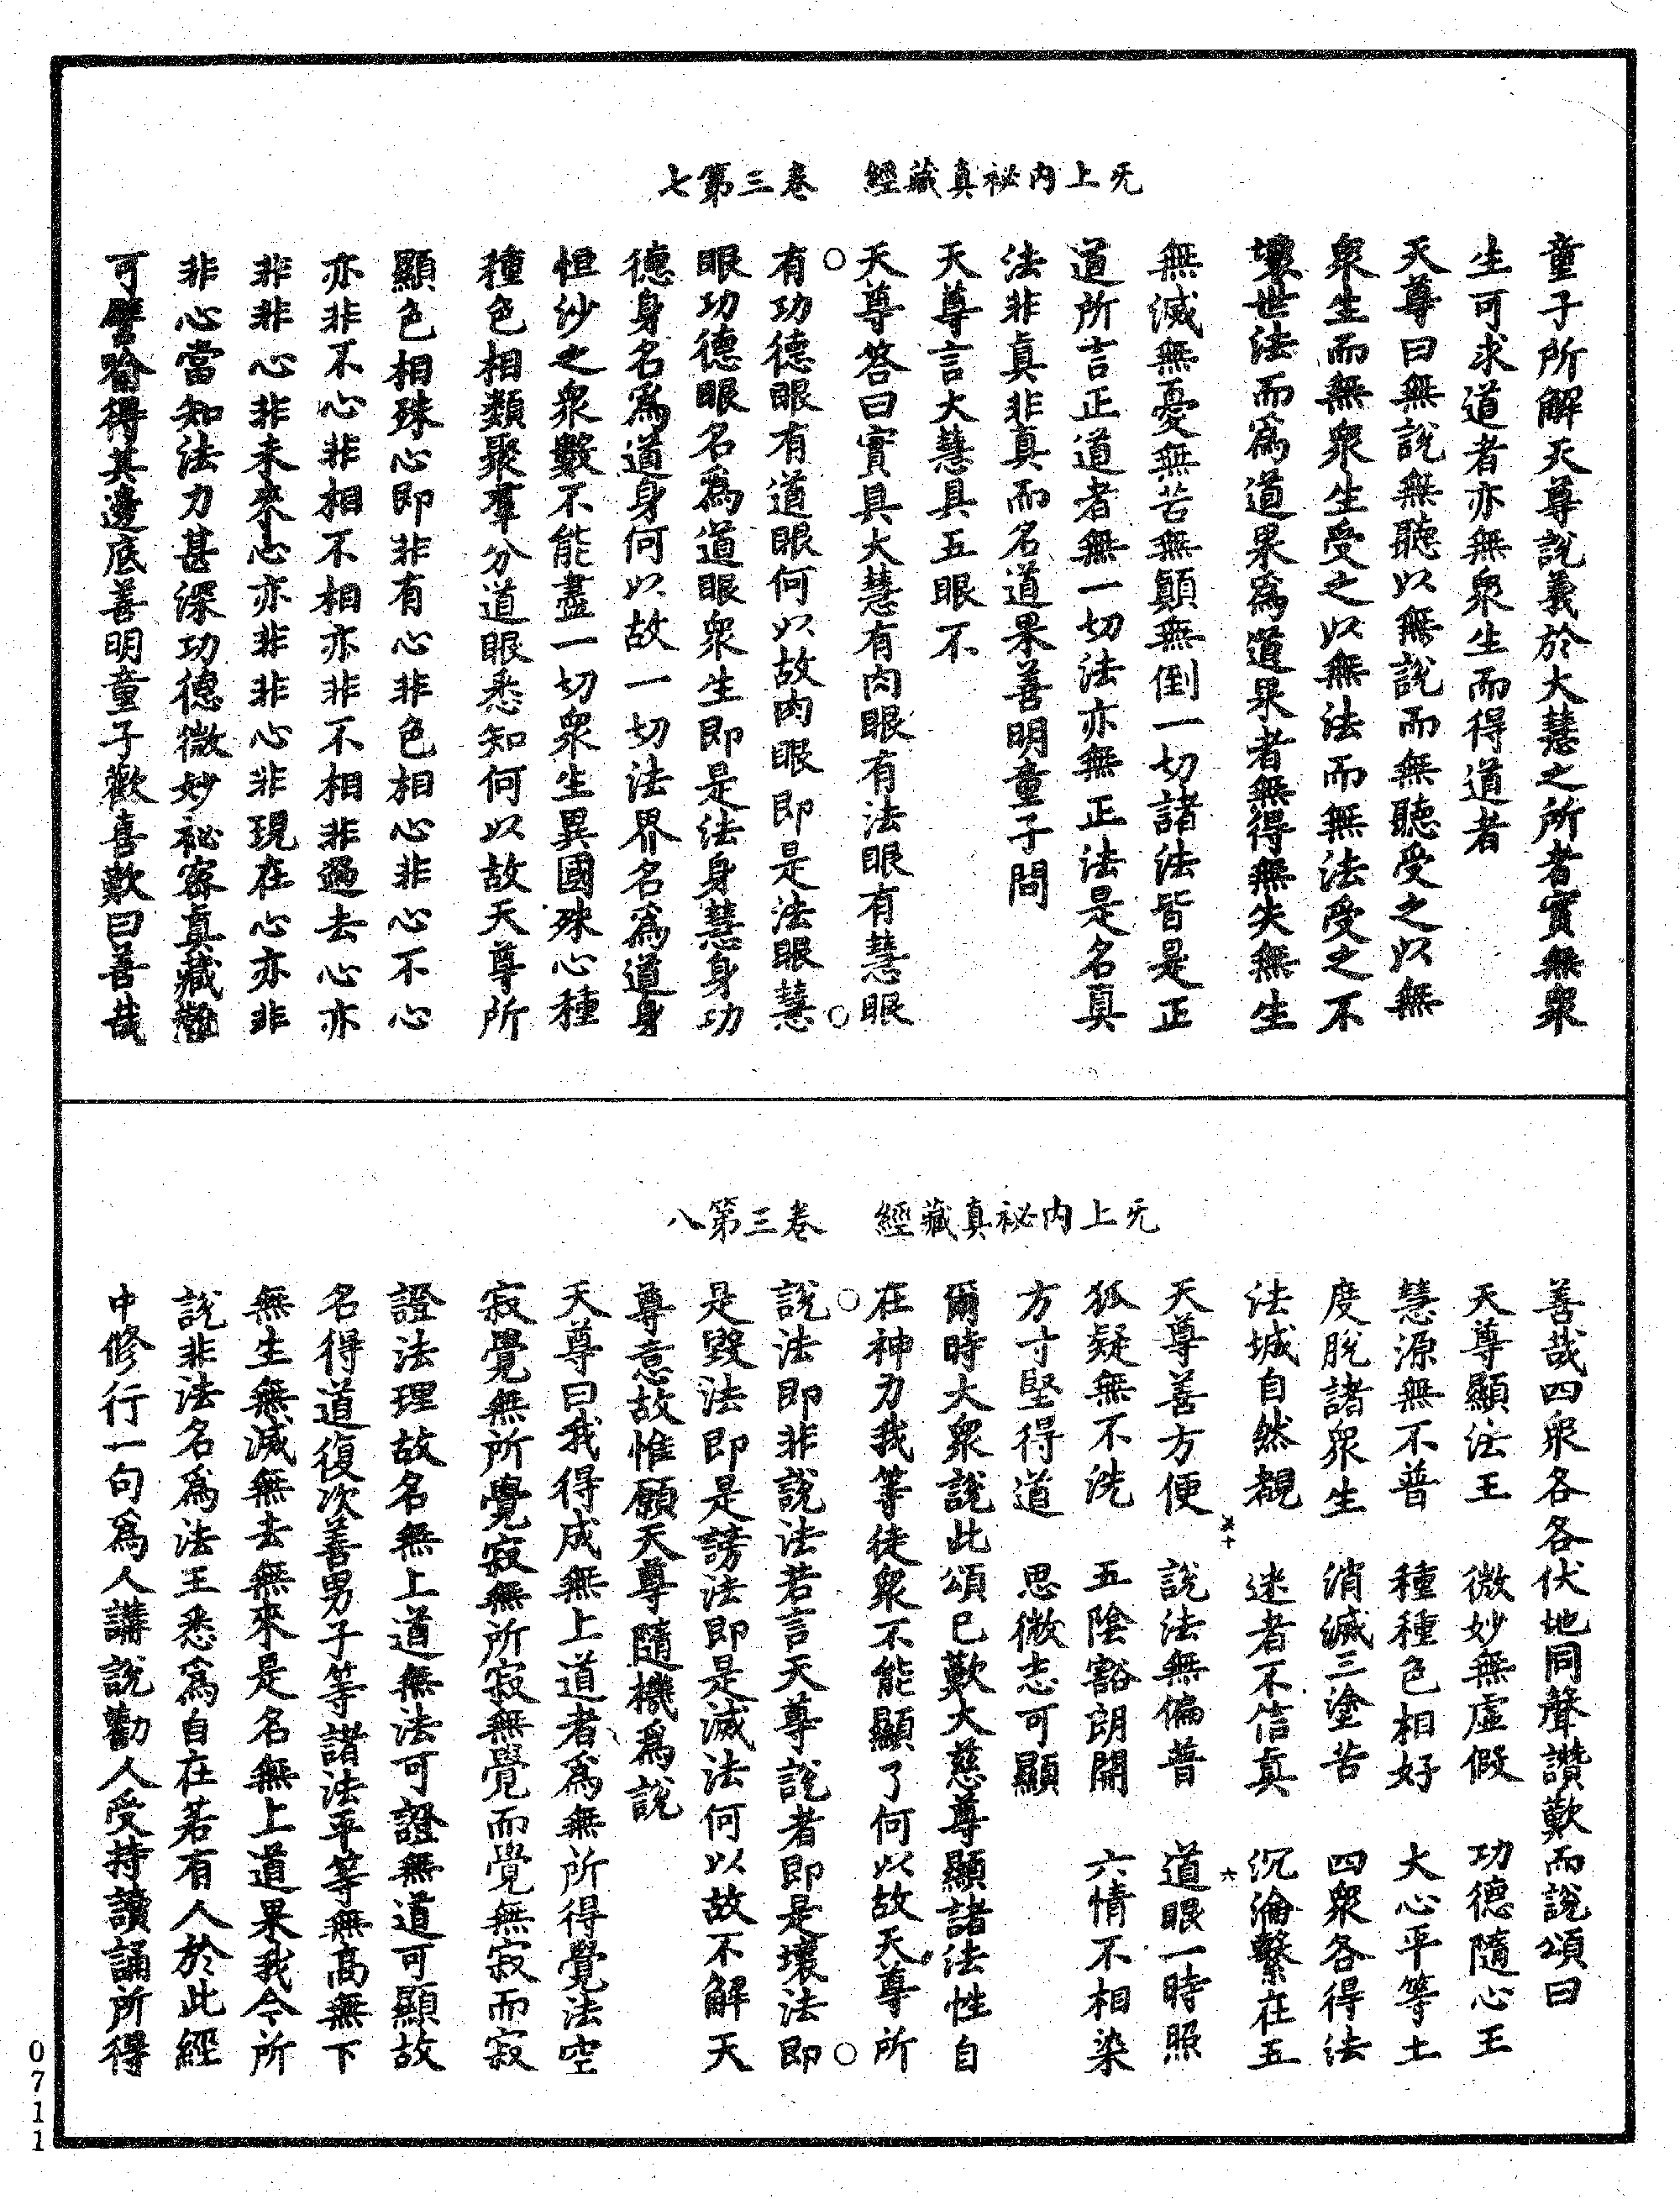 无上內祕真藏經　卷三第七
童子所解天尊說義於大慧之所者實無衆
生可求道者亦無衆生而得道者
天尊曰無說無聽以無說而無聽受之以無
衆生而無衆生受之以無法而無法受之不
壞世法而爲道果爲道果者無得無失無生
無滅無憂無苦無顛無倒一切諸法皆是正
道所言正道者無一切法亦無正法是名真
法非真非真而名道果善明童子問
天尊言大慧具五眼不
天尊答曰實具大慧有肉眼有法眼有慧眼
有功德眼有道眼何以故肉眼即是法眼慧
眼功德眼名爲道眼衆生即是法身慧身功
德身名爲道身何以故一切法界名爲道身
恒沙之衆數不能盡一切衆生異國殊心種
種色相類聚羣分道眼悉知何以故天尊所
顯色相殊心即非有心非色相心非心不心
亦非不心非相不相亦非不相非過去心亦
非非心非未來心亦非非心非現在心亦非
非心當知法力甚深功德微妙祕密真藏難
可譬喻得其邊底善明童子歡喜歎曰善哉
无上內祕真藏經　卷三第八
善哉四衆各各伏地同聲讚歎而說頌曰
天尊顯法王　微妙無虛假　功德隨心王
慧源無不普　種種色相好　大心平等土
度脫諸衆生　消滅三塗苦　四衆各得法
法城自然覩　迷者不信真　沉淪繫在五
天尊善方便　說法無偏普　道眼一時照
狐疑無不洗　五陰豁朗開　六情不相染
方寸堅得道　思微志可顯
爾時大衆說此頌已歎大慈尊顯諸法性自
在神力我等徒衆不能顯了何以故天尊所
說法即非說法若言天尊說者即是壞法即
是毀法即是謗法即是滅法何以故不解天
尊意故惟願天尊隨機爲說
天尊曰我得成無上道者爲無所得覺法空
寂覺無所覺寂無所寂無覺而覺無寂而寂
證法理故名無上道無法可證無道可顯故
名得道復次善男子等諸法平等無高無下
無生無滅無去無來是名無上道果我今所
說非法名爲法王悉爲自在若有人於此經
中修行一句爲人講說勸人受持讀誦所得
0711